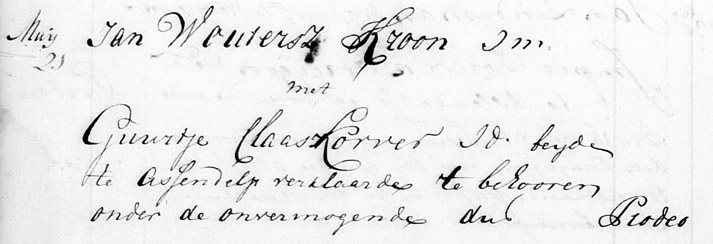 Muij Jan Woutersz Kroon Jm
21
met
Guurtje Claas Korver Jd. beyde
te Assendelf verklaarde te behooren
onder de onvermogende dus Prodeo